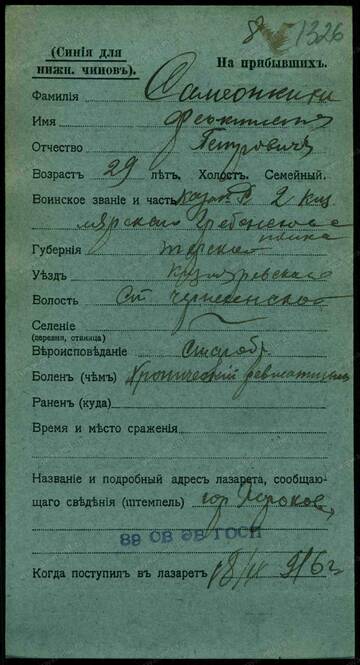 8 1326
(Синія для
нижн. чиновъ).
На прибывшихъ.
Фамилія
Имя Феоктистъ
Отчество Петровичъ
Возрастъ 29 лѣтъ, Холост. Семейный.
Воинское званіе и часть казакъ 2 Киз
лярскаго Гребенского
полка
Губернія Терская
Уѣздъ
Волость Ст.
Селеніе
(деревня, станица)
Вѣроисповѣданіе Старобр
Боленъ (чѣмъ) Хроническій ревматизмъ
Раненъ (куда)
Время и мѣсто сраженія
Названіе и подробный адресъ лазарета, сообщаю-
щаго свѣдѣнія (штемпель) гор
Когда поступилъ въ лазаретъ 916 г